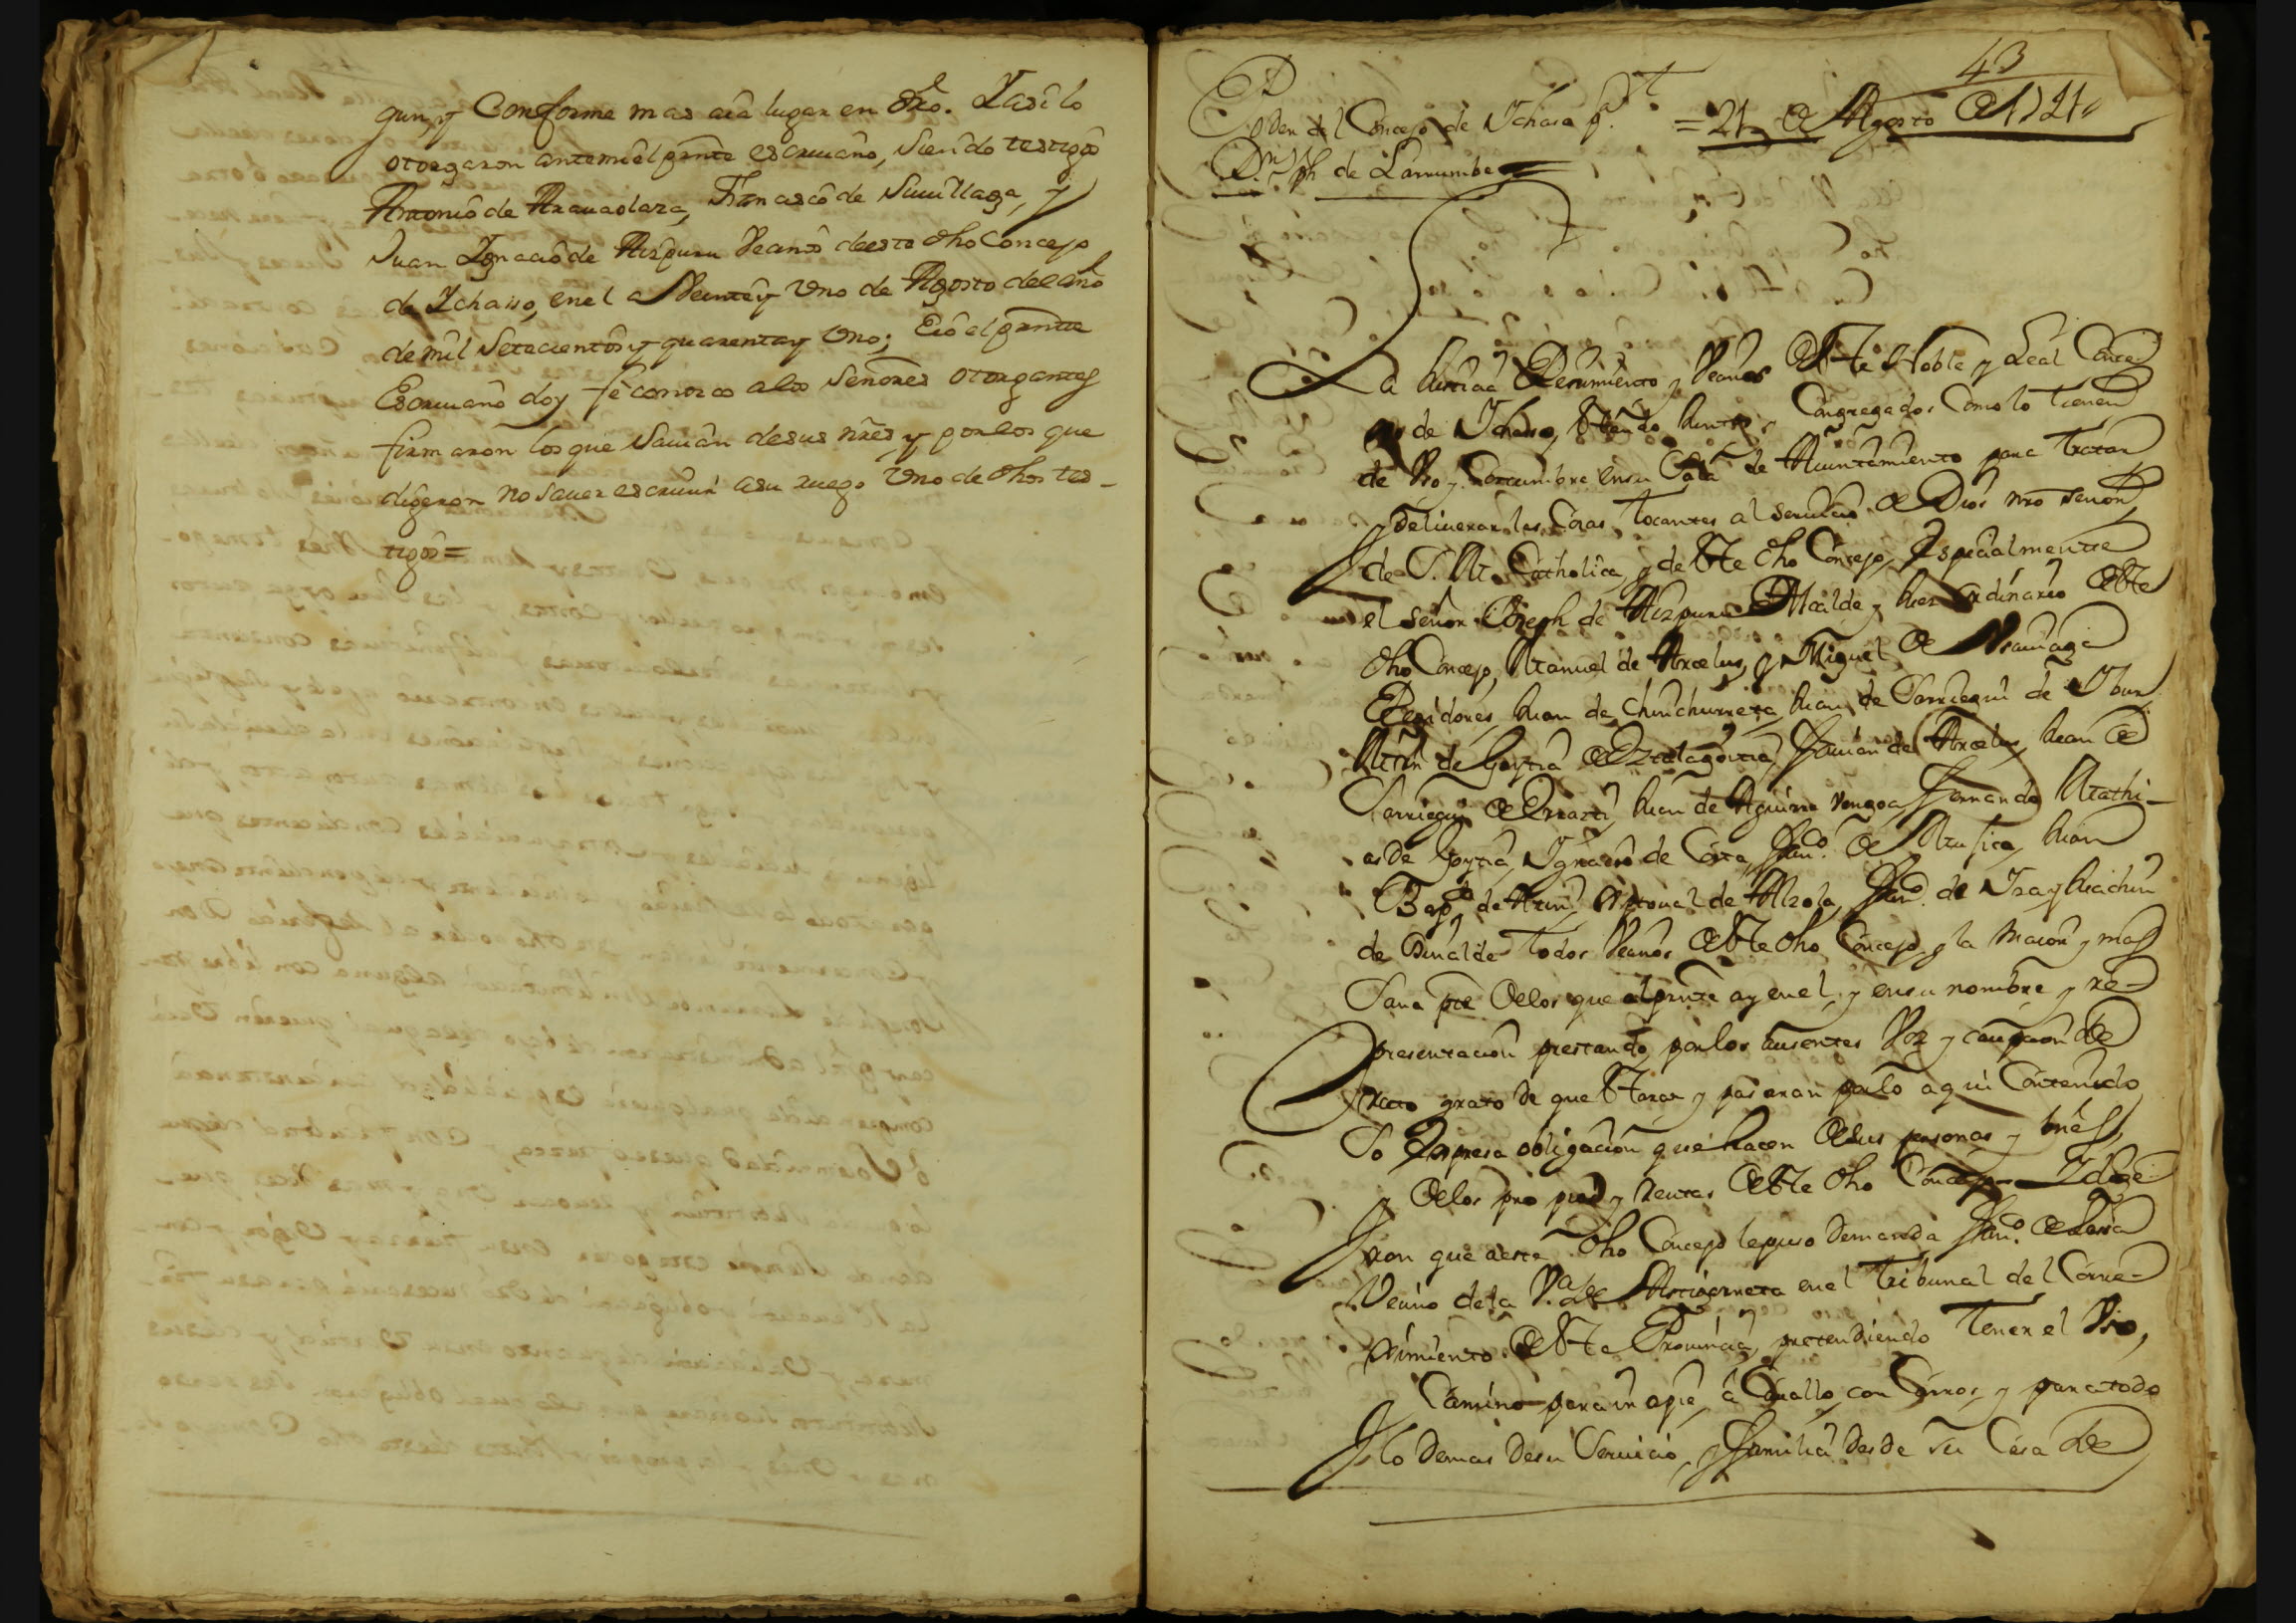 gun, y Conforme mas aia lugar en dro. Y asi lo
otorgaron antemi el presnte escriuano, siendo testigos
Antonio de Arauaolaza, Francisco de Sucillaga, y
Juan Ygnacio de Aizpuru Vecinos de este dho Concejo
de Ychasso, en el a Veinte y Uno de Agosto del año
de mil setecientos y quarenta y Uno; E io el presnte
Escriuano doy fe conozco a los Señores otorgantes
firmaron los que sauian de sus nres y por los que
digeron no sauer escriuir a su ruego Uno de dhos tes-
tigos =
43
Poder del Concejo de Ychaso pa.
Dn. Jph de Larrumbe
= 21 de Agosto de 1741
La Justicia Regimiento, y Vecinos de este Noble y Leal Conce-
jo de Ychasso, estando Juntos, Congregados Como lo tienen
de Vso y Costumbre en su Casa de Aiuntamiento para tratar
y deliuerar las Cosas tocantes al seruicio de Dios nro señor,
de S. M. Catholica, y de este dho Concejo, Especialmente
el señor Joseph de Aizpuru Alcalde y Juez ordinario de este
dho Concejo, Manuel de Arzelus, y Miguel de
Regidores, Juan de Chinchurreta, Juan de Sarriegui de
Mrn de Goytia de Juan de
Sarriegui de Juan de Aguirre vengoa, Fernando Mathi-
as de Goytia, Ygnacio de Franco. de Juan
Bapta de Xptoual de Alzola, Franco. de y Juachin
de todos Vecinos de este dho Concejo, y la maior y mas
Sana pte de los que al presnte ay en el, y en su nombre y re-
presentacion prestando por los ausentes Voz y caupcion de
rato grato de que estaran y pasaran por lo aqui Contenido,
So Expresa obligacion que hacen de sus personas y vnes,
y de los propios y rentas de este dho Concejo
ron que a este dho Concejo le puso Demanda Franco. de
Vecino de la Va. de en el tribunal del Corre-
ximiento de esta Prouincia, pretendiendo tener el Vso,
Camino para ir a pie, a Cauallo, con Carros, y para todo
lo demas de su Seruicio, y familia desde su Casa de